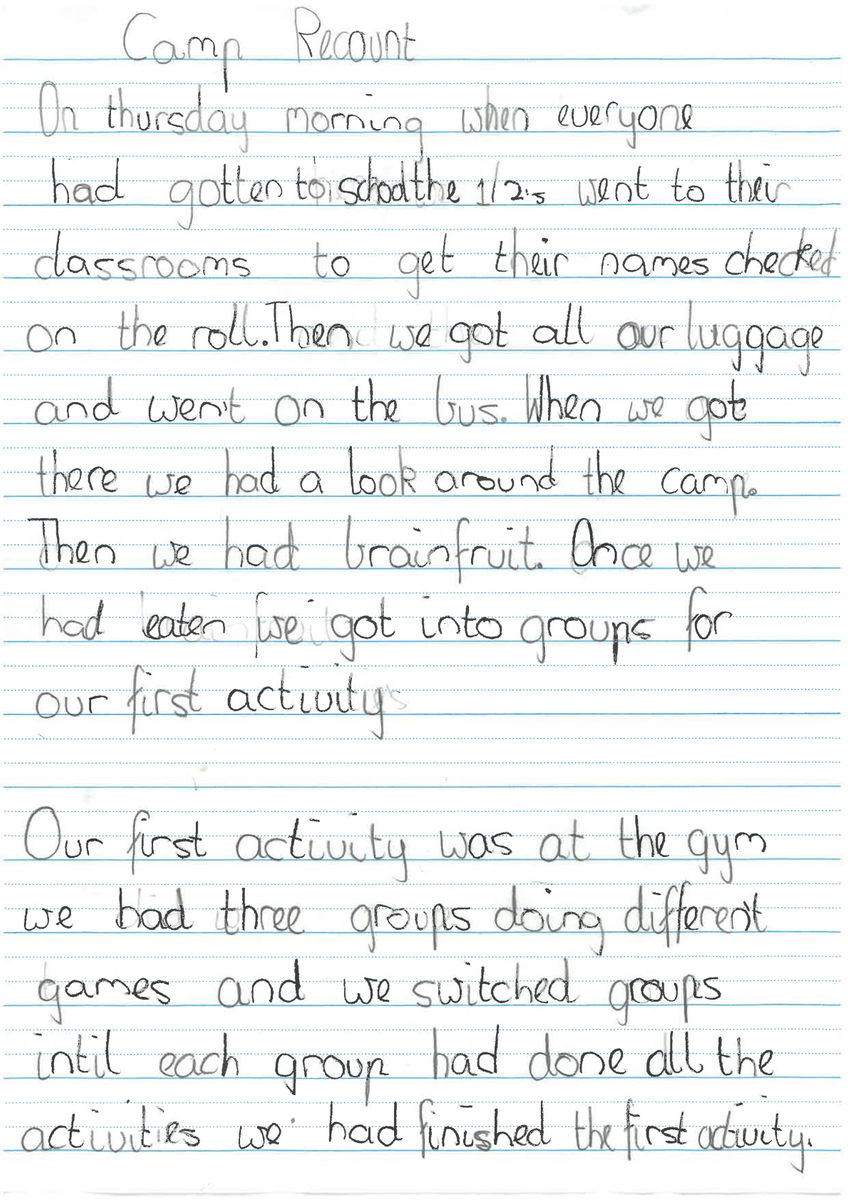 Camp Recount
On thursday morning when everyone
had gotten to school the 1/2's went to their
classrooms to get their names checked
on the roll. Then we got all our luggage
and went on the bus. When we got
there we had a look around the camp.
Then we had brainfruit. Once we
had eaten we got into groups for
our first activity
Our first activity was at the gym
we had three groups doing different
games and we switched groups
intil each group had done all the
activities we had finished the first activity.